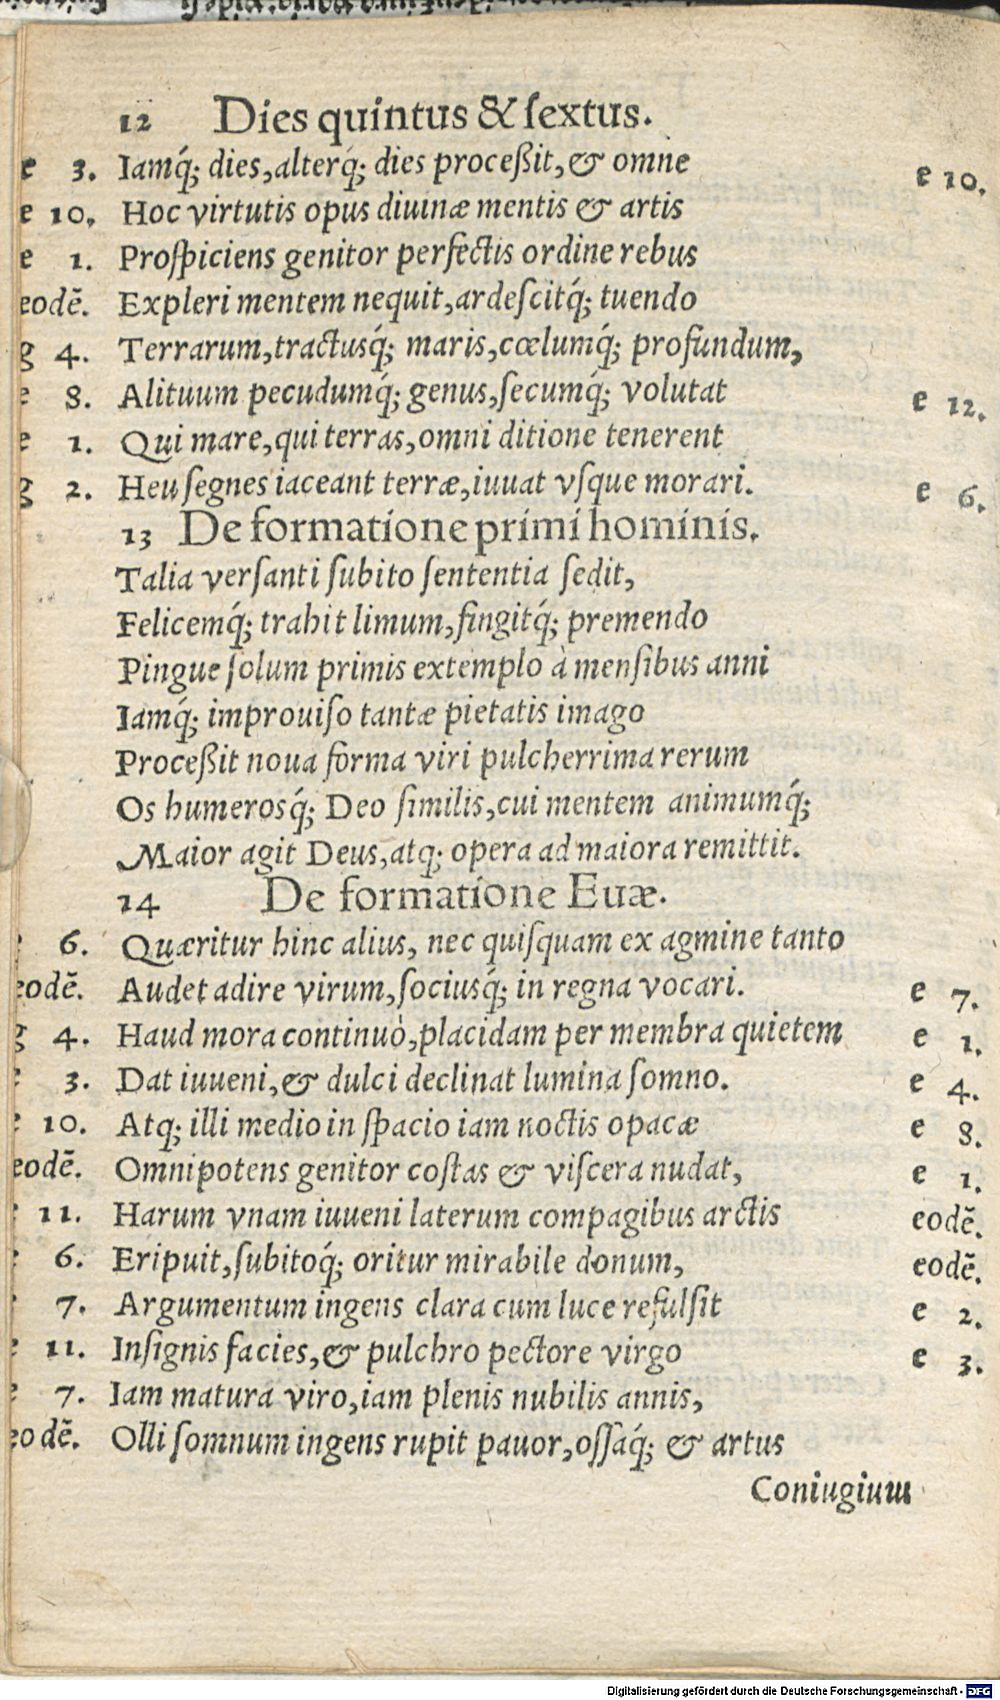 12 Dies quintus & ſextus.
e 3. Iamq́; dies, alterq́; dies proceßit, & omne e 10.
e 10. Hoc virtutis opus diuinæ mentis & artis
e 1. Proſpiciens genitor perfectis ordine rebus
eodē. Expleri mentem nequit, ardeſcitq́; tuendo
g 4. Terrarum, tractusq́; maris, cœlumq́; profundum,
e 8. Alituum pecudumq́; genus, ſecumq́; volutat e 12.
e 1. Qui mare, qui terras, omni ditione tenerent
g 2. Heu ſegnes iaceant terræ, iuuat vſque morari. e 6.
13 De formatione primi hominis.
Talia verſanti ſubito ſententia ſedit,
Felicemq́; trahit limum, fingitq́; premendo
Pingue ſolum primis extemplo à menſibus anni
Iamq́; improuiſo tantæ pietatis imago
Proceßit noua forma viri pulcherrima rerum
Os humerosq́; Deo ſimilis, cui mentem animumq́;
Maior agit Deus, atq; opera ad maiora remittit.
14 De formatione Euæ.
6. Quæritur hinc alius, nec quiſquam ex agmine tanto
eodē. Audet adire virum, ſociusq́; in regna vocari. e 7.
g 4. Haud mora continuò, placidam per membra quietem e 1.
3. Dat iuueni, & dulci declinat lumina ſomno. e 4.
10. Atq; illi medio in ſpacio iam noctis opacæ e 8.
eodē. Omnipotens genitor coſtas & viſcera nudat, e 1.
11. Harum vnam iuueni laterum compagibus arctis eodē.
6. Eripuit, ſubitoq́; oritur mirabile donum, eodē.
7. Argumentum ingens clara cum luce refulſit e 2.
11. Inſignis facies, & pulchro pectore virgo e 3.
7. Iam matura viro, iam plenis nubilis annis,
eodē. Olli ſomnum ingens rupit pauor, oſſaq́; & artus
Coniugium
Digitalisierung gefördert durch die Deutsche Forschungsgemeinschaft - DFG